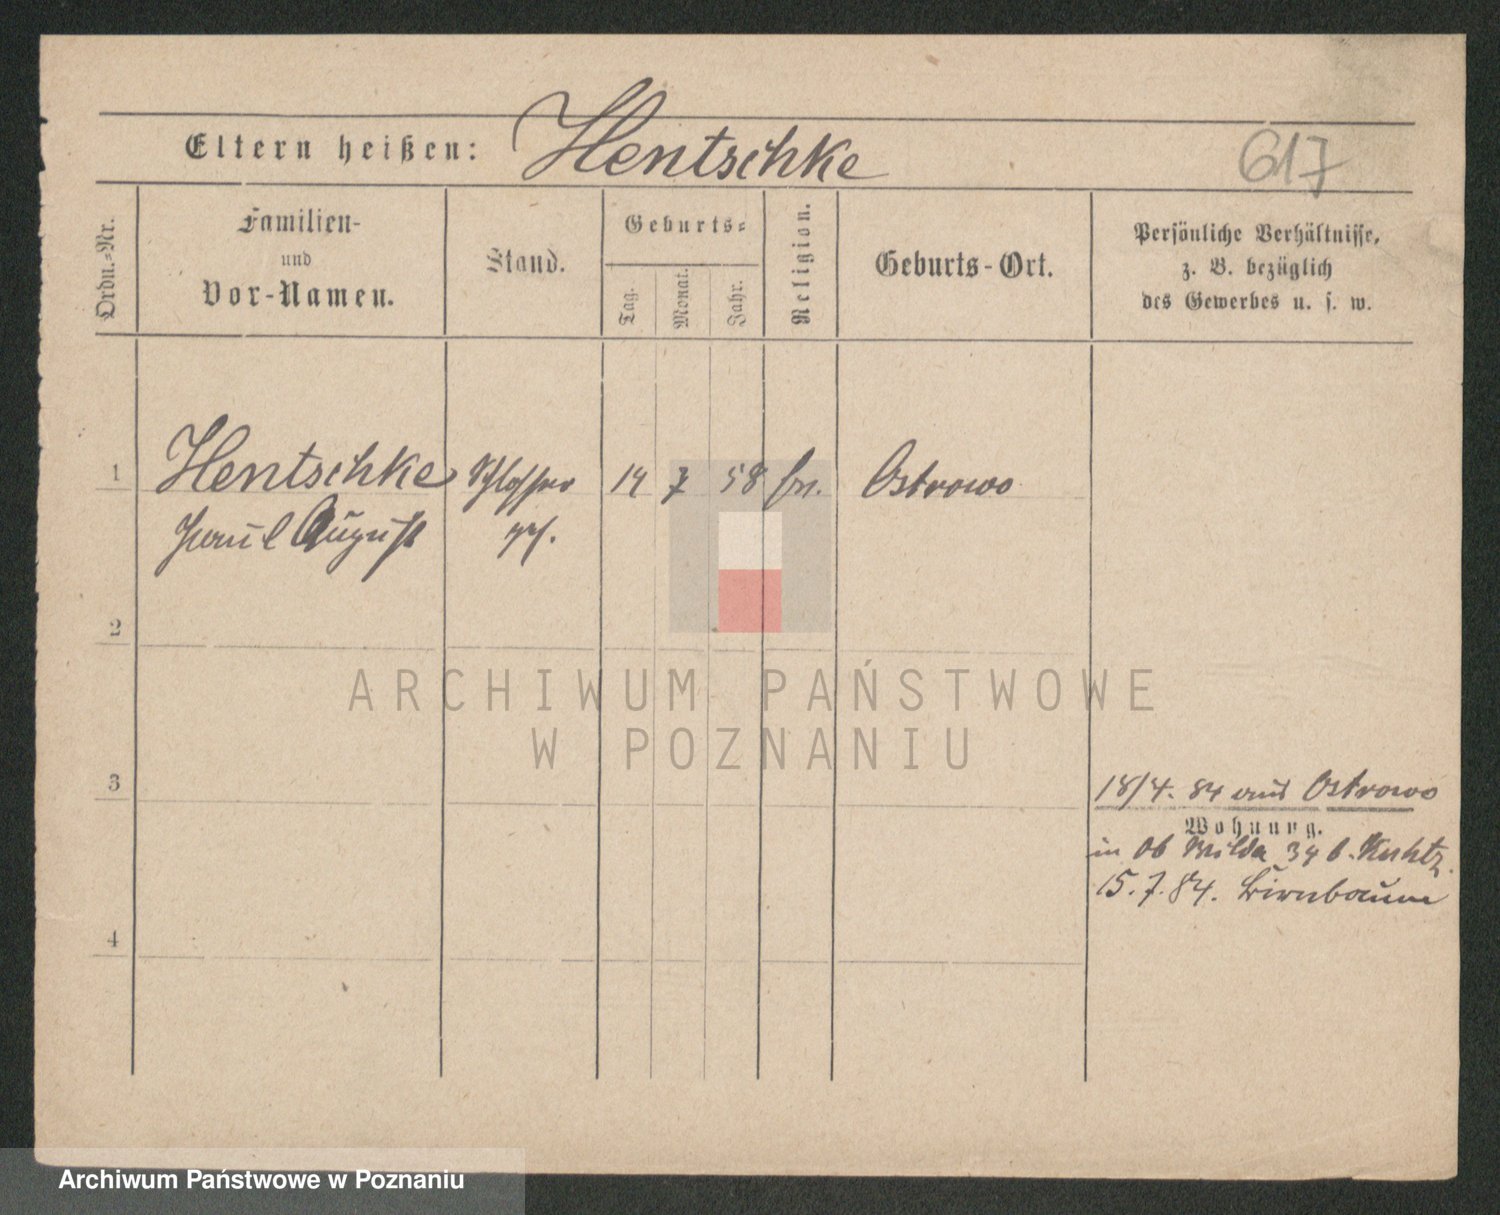 Eltern heißen: Hentschke
617
Ordn.=Nr.
Familien-
und
Vor-Namen.
Stand.
Geburts=
Tag.
Monat.
Jahr.
Religion.
Geburts-Ort.
Persönliche Verhältnisse,
z. B. bezüglich
des Gewerbes u. s. w.
1 Hentschke Schlosser 14 7 58 Ostrowo
Paul August
2
3
18/4. 84 aus Ostrowo
Wohnung.
in Ob Wilda 34 b.
15. 7. 84. Birnbaum
4
ARCHIWUM PAŃSTWOWE
W POZNANIU
Archiwum Państwowe w Poznaniu